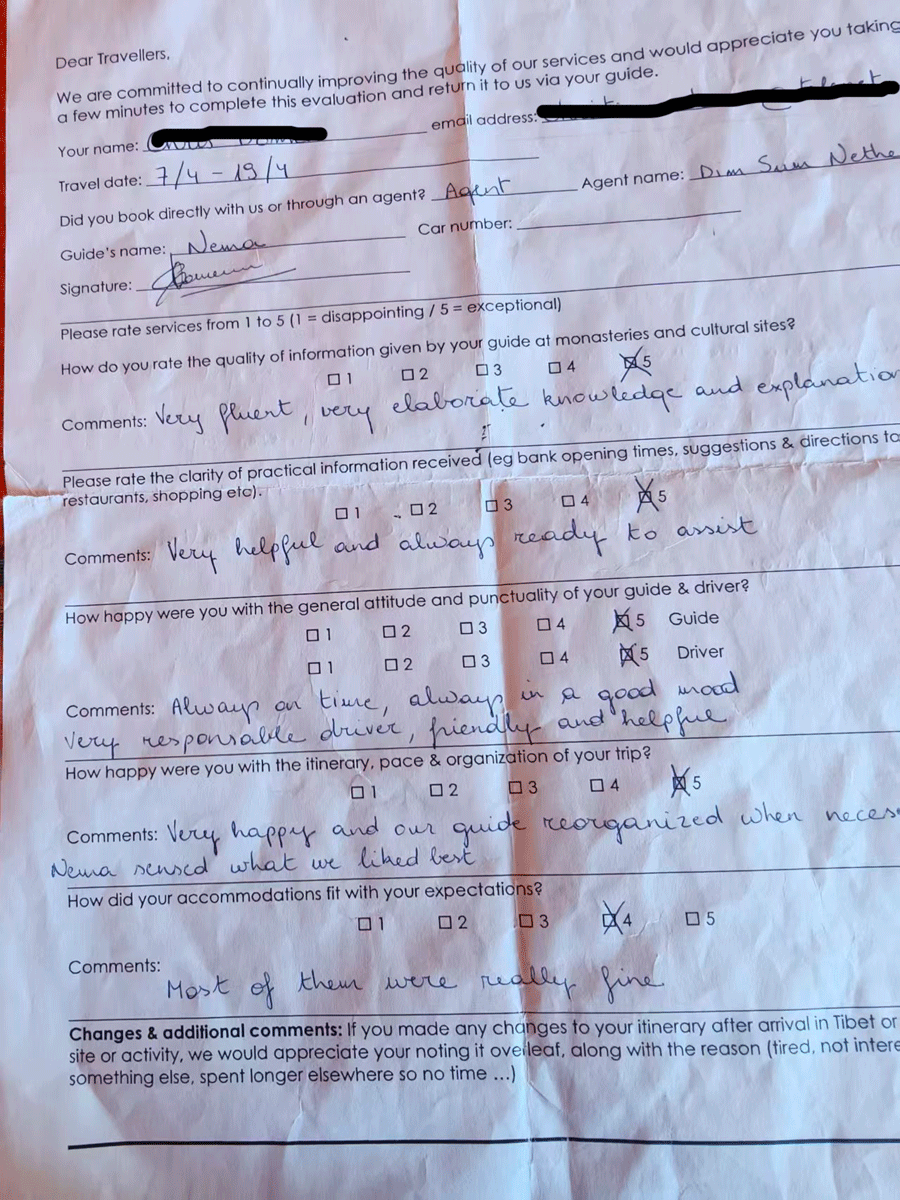 Dear Travellers,
We are committed to continually improving the quality of our services and would appreciate you taking
a few minutes to complete this evaluation and return it to us via your guide.
Your name: email address:
Travel date: 7/4 - 19/4
Did you book directly with us or through an agent? Agent Agent name: Dim Sum Nethe
Guide's name: Nema Car number:
Signature:
Please rate services from 1 to 5 (1 = disappointing / 5 = exceptional)
How do you rate the quality of information given by your guide at monasteries and cultural sites?
☐ 1 ☐ 2 ☐ 3 ☐ 4 ☒ 5
Comments: Very fluent, very elaborate knowledge and explanation
Please rate the clarity of practical information received (eg bank opening times, suggestions & directions to
restaurants, shopping etc).
☐ 1 ☐ 2 ☐ 3 ☐ 4 ☒ 5
Comments: Very helpful and always ready to assist
How happy were you with the general attitude and punctuality of your guide & driver?
☐ 1 ☐ 2 ☐ 3 ☐ 4 ☒ 5 Guide
☐ 1 ☐ 2 ☐ 3 ☐ 4 ☒ 5 Driver
Comments: Always on time, always in a good mood
Very responsable driver, friendly and helpful
How happy were you with the itinerary, pace & organization of your trip?
☐ 1 ☐ 2 ☐ 3 ☐ 4 ☒ 5
Comments: Very happy and our guide reorganized when neces
Nema sensed what we liked best
How did your accommodations fit with your expectations?
☐ 1 ☐ 2 ☐ 3 ☒ 4 ☐ 5
Comments:
Most of them were really fine
Changes & additional comments: If you made any changes to your itinerary after arrival in Tibet or
site or activity, we would appreciate your noting it overleaf, along with the reason (tired, not intere
something else, spent longer elsewhere so no time ...)